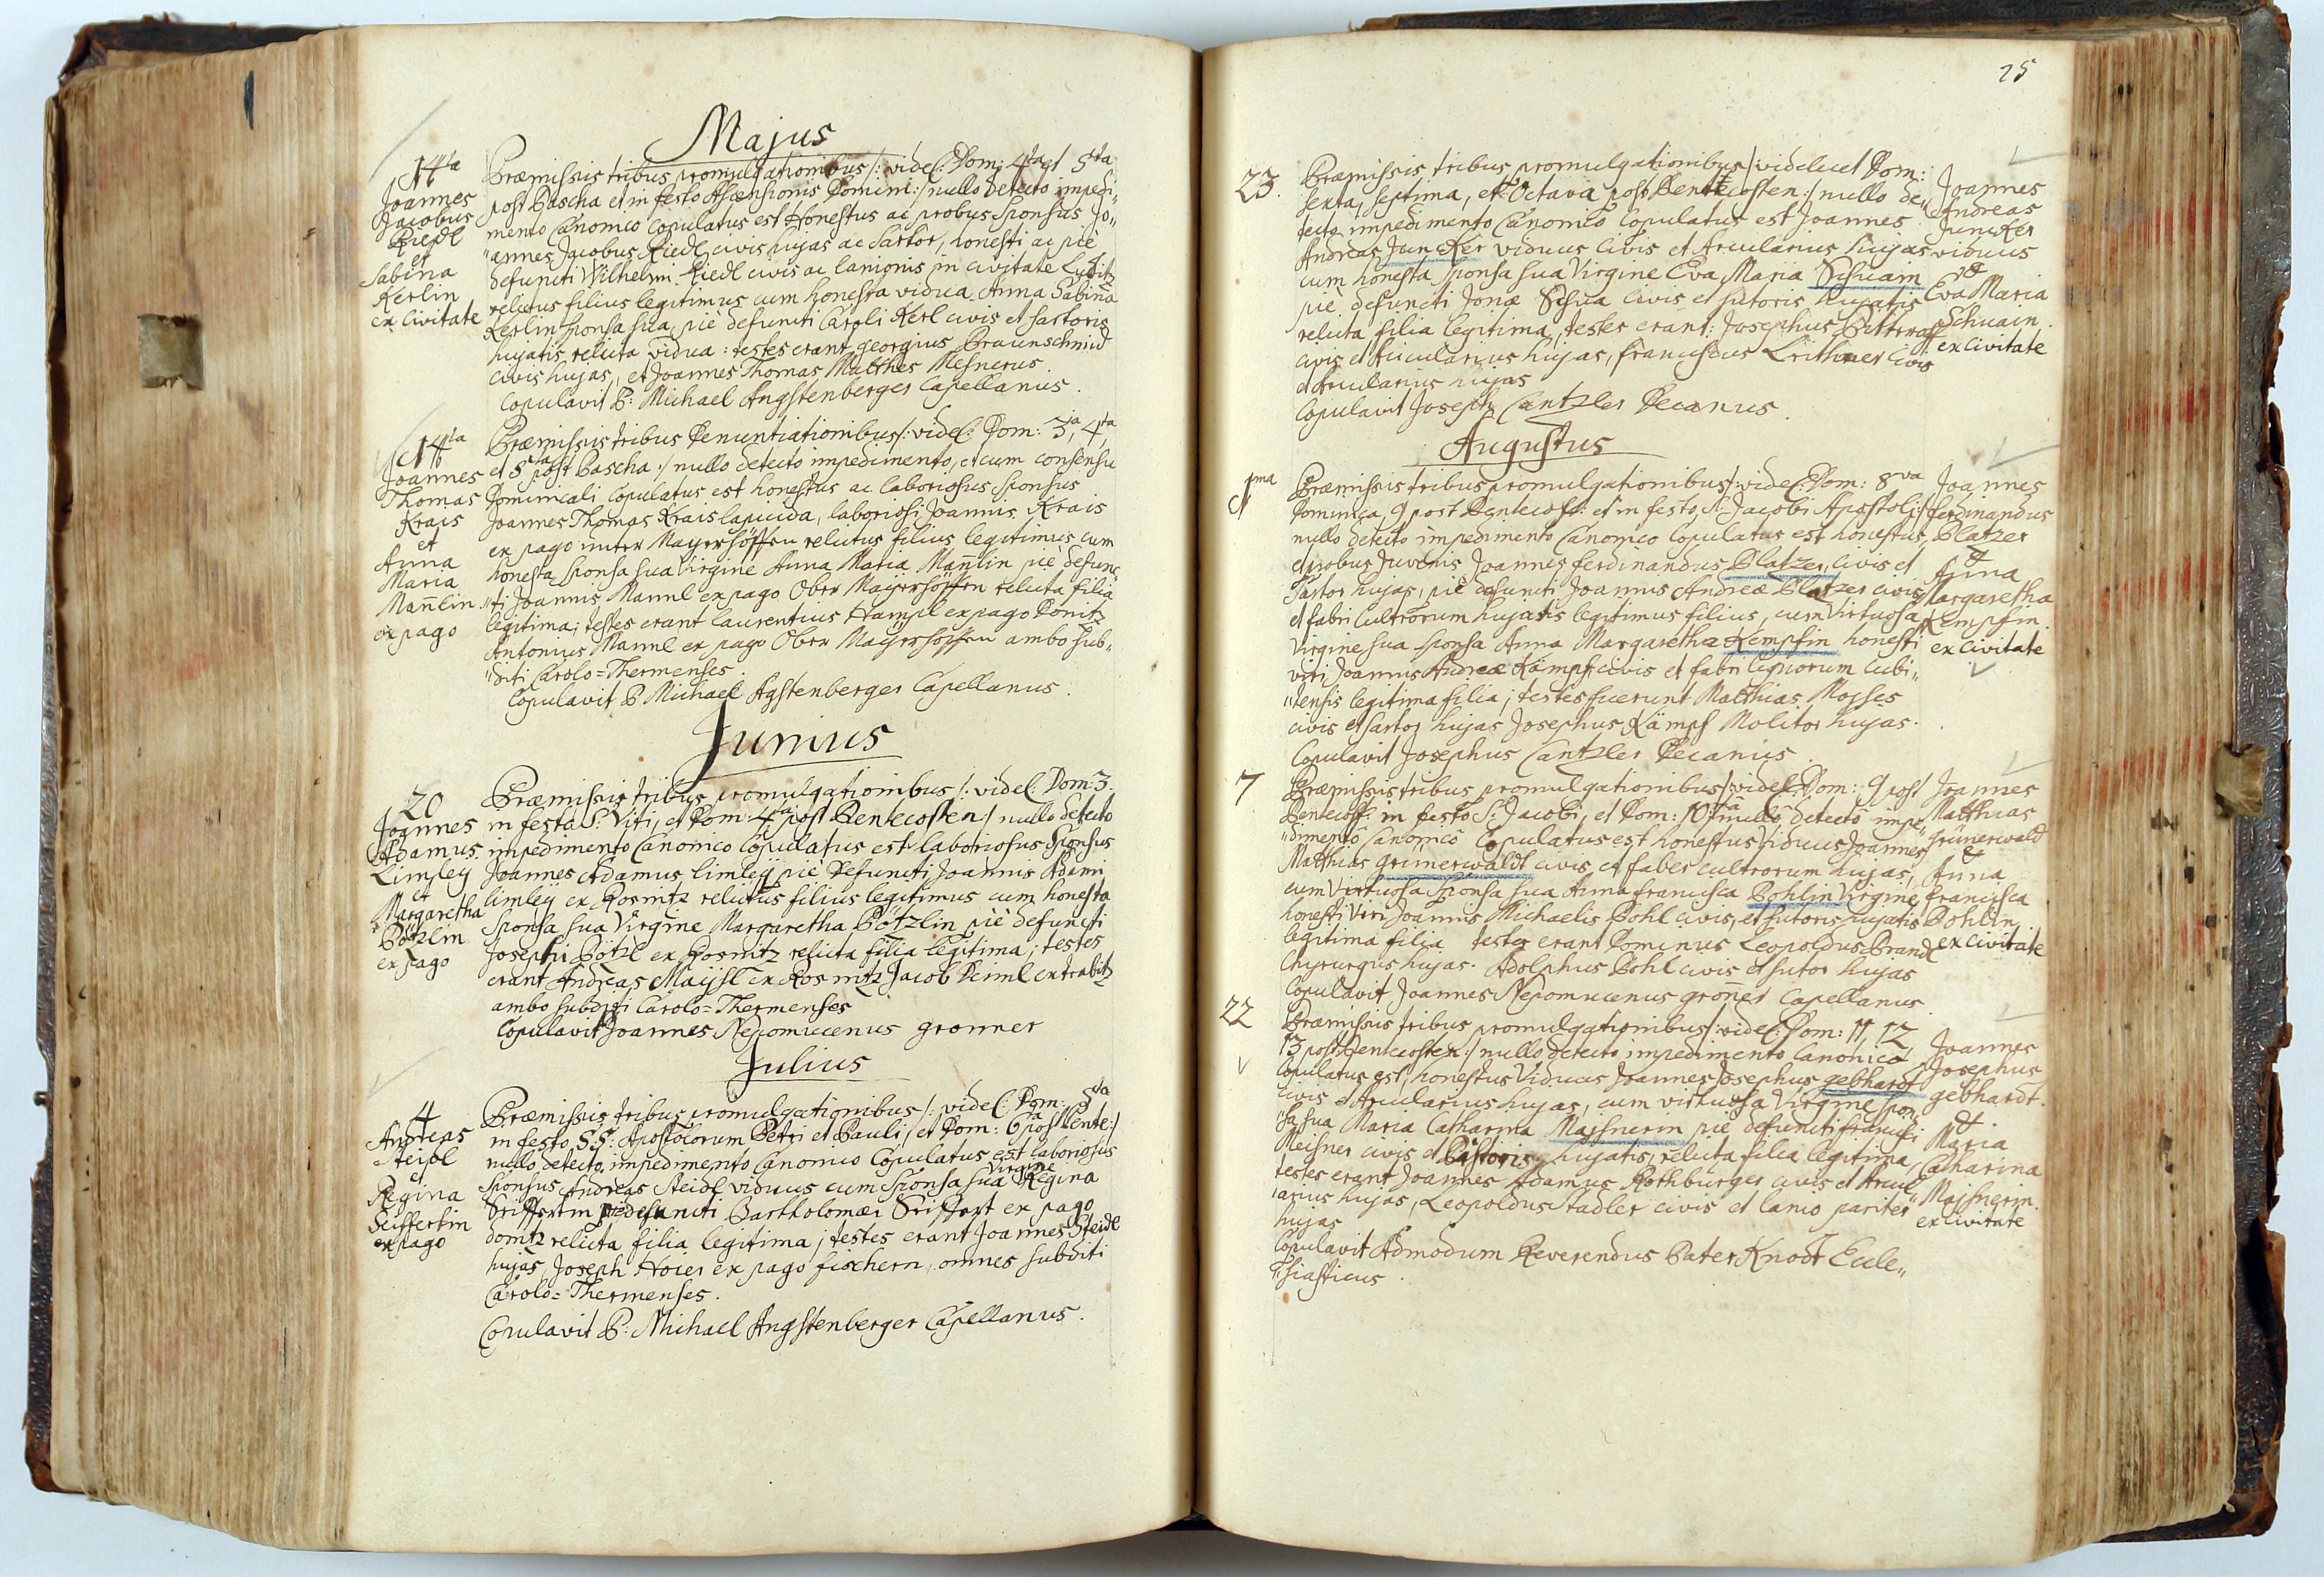 Majus
14ta
Joannes
Jacobus
Riedl
et
Sabina
Kerlin
ex Civitate
Præmissis tribus promulgationibus /: videl: Dom: 4ta et 5ta
post Pascha et in festo Ascensionis Domini :/ nullo detecto impedi„
mento Canonico Copulatus est Honestus ac probus Sponsus Jo„
„annes Jacobus Riedl civis hujas ac Sartor, honesti ac piè
defuncti Wilhelmi Riedl civis ac lanionis in civitate
relictus filius legitimus cum honesta vidua Anna Sabina
Kerlin Sponsa sua, piè defuncti Caroli Kerl civis et sartoris
hujatis relicta vidua: testes erant georgius Braunschmid
civis hujas, et Joannes Thomas Matthes Mesnerus.
Copulavit P: Michael Angstenberger Capellanus.
14ta
Joannes
Thomas
Krais
et
Anna
Maria
Man̄lin
ex pago
Præmissis tribus Denuntiationibus /: videl: Dom: 3ia, 4ta,
et 5ta post Pascha :/ nullo detecto impedimento, et cum consensu
Dominicali Copulatus est honestus ac laboriosus Sponsus
Joannes Thomas Krais lapicida, laboriosi Joannis Krais
ex pago unter Mayerhöffen relictus filius legitimus cum
honesta Sponsa sua Virgine Anna Maria Man̄lin piè defunc
„ti Joannis Mannl ex pago Ober Maÿerhöffen relicta filia
legitima; testes erant Laurentius Hampl ex pago Donitz
Antonius Mannl ex pago Ober Maÿerhöffen ambo sub„
„diti Carolo=Thermenses.
Copulavit P Michael Agstenberger Capellanus.
Junius
20
Joannes
Adamus
Limleÿ
et
Margaretha
Pötzlin
ex pago
Præmissis tribus promulgationibus /: videl: Dom: 3.
in festa S: Viti, et Dom: 4ta post Pentecosten :/ nullo detecto
impedimento Canonico Copulatus est laboriosus Sponsus
Joannes Adamus Limleÿ piè Defuncti Joannis Adami
limleÿ ex Rosnitz relictus filius legitimus cum honesta
Sponsa sua Virgine Margaretha Pötzlin piè defuncti
Josephi Pötzl ex Rosnitz relicta filia legitima; testes
erant Andreas Maÿsl ex Rosnitz Jacob Deiml ex trabitz
ambo subditi Carolo=Thermenses
Copulavit Joannes Nepomucenus gronner
Julius
4
Andreas
Steidl
et
Regina
Seiffertin
ex pago
Præmissis tribus promulgationibus /: videl: Dom: 5ta
in festo S:S: Apostolorum Petri et Pauli, et Dom: 6ta post Pente:/
nullo detecto impedimento Canonico Copulatus est laboriosus
Sponsus Andreas Steidl viduus cum Sponsa sua Virgine Regina
Seiffertin pie defuncti Bartholomæi Seiffert ex pago
donitz relicta filia legitima; testes erant Joannes Steidl
hujas, Joseph Hoier ex pago fischern, omnes subditi
Carolo=Thermenses.
Copulavit P: Michael Angstenberger Capellanus.
25
23.
Præmissis tribus promulgationibus /: videlicet Dom:
sexta, septima, et Octava post Pentecosten :/ nullo de„
tecto impedimento Canonico Copulatus est Joannes
Andreas Juncker viduus Civis et Arcularius hujas
cum honesta Sponsa sua Virgine Eva Maria Schuain
pie defuncti Jonæ Schua Civis et sutoris hujatis
relicta filia legitima, testes erant: Josephus Bitterast
civis et Arcularius hujas, franciscus Leithner civis
et Arcularius hujas
Copulavit Joseph Cantzler Decanus.
Joannes
Andreas
Juncker
viduus
et
Eva Maria
Schuain.
ex civitate
Augustus
1ma
Præmissis tribus promulgationibus /: videl: Dom: 8va
Dominica, 9 post Pentecost: et in festo S: Jacobi Apostoli:/
nullo detecto impedimento Canonico Copulatus est honestus,
et probus Juvenis Joannes ferdinandus Platzer, civis et
Sartor hujas, piè defuncti Joannis Andreæ Platzer civis
et fabri Cultrorum hujatis legitimus filius, cum Virtuosa
Virgine sua Sponsa Anna Margaretha Kempfin honesti
viri Joannis Andreæ Kämpf, civis et fabri lignorum Cubi„
„tensis legitima filia; testes fuerunt Matthias Mosses
civis et sartor hujas Josephus Kämpf Molitor hujas.
Copulavit Josephus Cantzler Decanus.
Joannes
ferdinandus
Platzer
et
Anna
Margaretha
Kempfin.
ex Civitate
7
Præmissis tribus promulgationibus /: videl: Dom: 9 post
Pentecost: in festo S: Jacobi, et Dom: 10ma :/ nullo detecto impe„
„dimento Canonico Copulatus est honestus Viduus Joannes
Matthias Grünerwaldt civis et faber cultrorum hujas,
cum Virtuosa Sponsa sua Anna francisca Pohlin Virgine
honesti Viri Joannis Michaelis Pohl civis, et sutoris hujatis
legitima filia testes erant Dominus Leopoldus Brandl
Chyrurgus hujas. Adolphus Pohl civis et sutor hujas
Copulavit Joannes Nepomucenus gron̄er Capellanus
Joannes
Matthias
Grünerwald
et
Anna
francisca
Pohlin
ex civitate
22
Præmissis tribus promulgationibus /: videl: Dom: 11, 12
13 post Pentecosten :/ nullo detecto impedimento Canonico
Copulatus est, honestus Viduus Joannes Josephus gebhardt
civis et Arcularius hujas, cum virtuosa Virgine Spon„
„sa sua Maria Catharina Maisnerin pie defuncti francisci
Meisner civis et Pistoris hujatis, relicta filia legitima,
testes erant Joannes Adamus Rothburger civis et Arcul
„arius hujas, Leopoldus Stadler civis et lanio pariter
hujas
Copulavit Admodum Reverendus Pater Knodt Eccle„
„siasticus.
Joannes
Josephus
gebhardt.
et
Maria
Catharina
Maisnerin.
ex Civitate